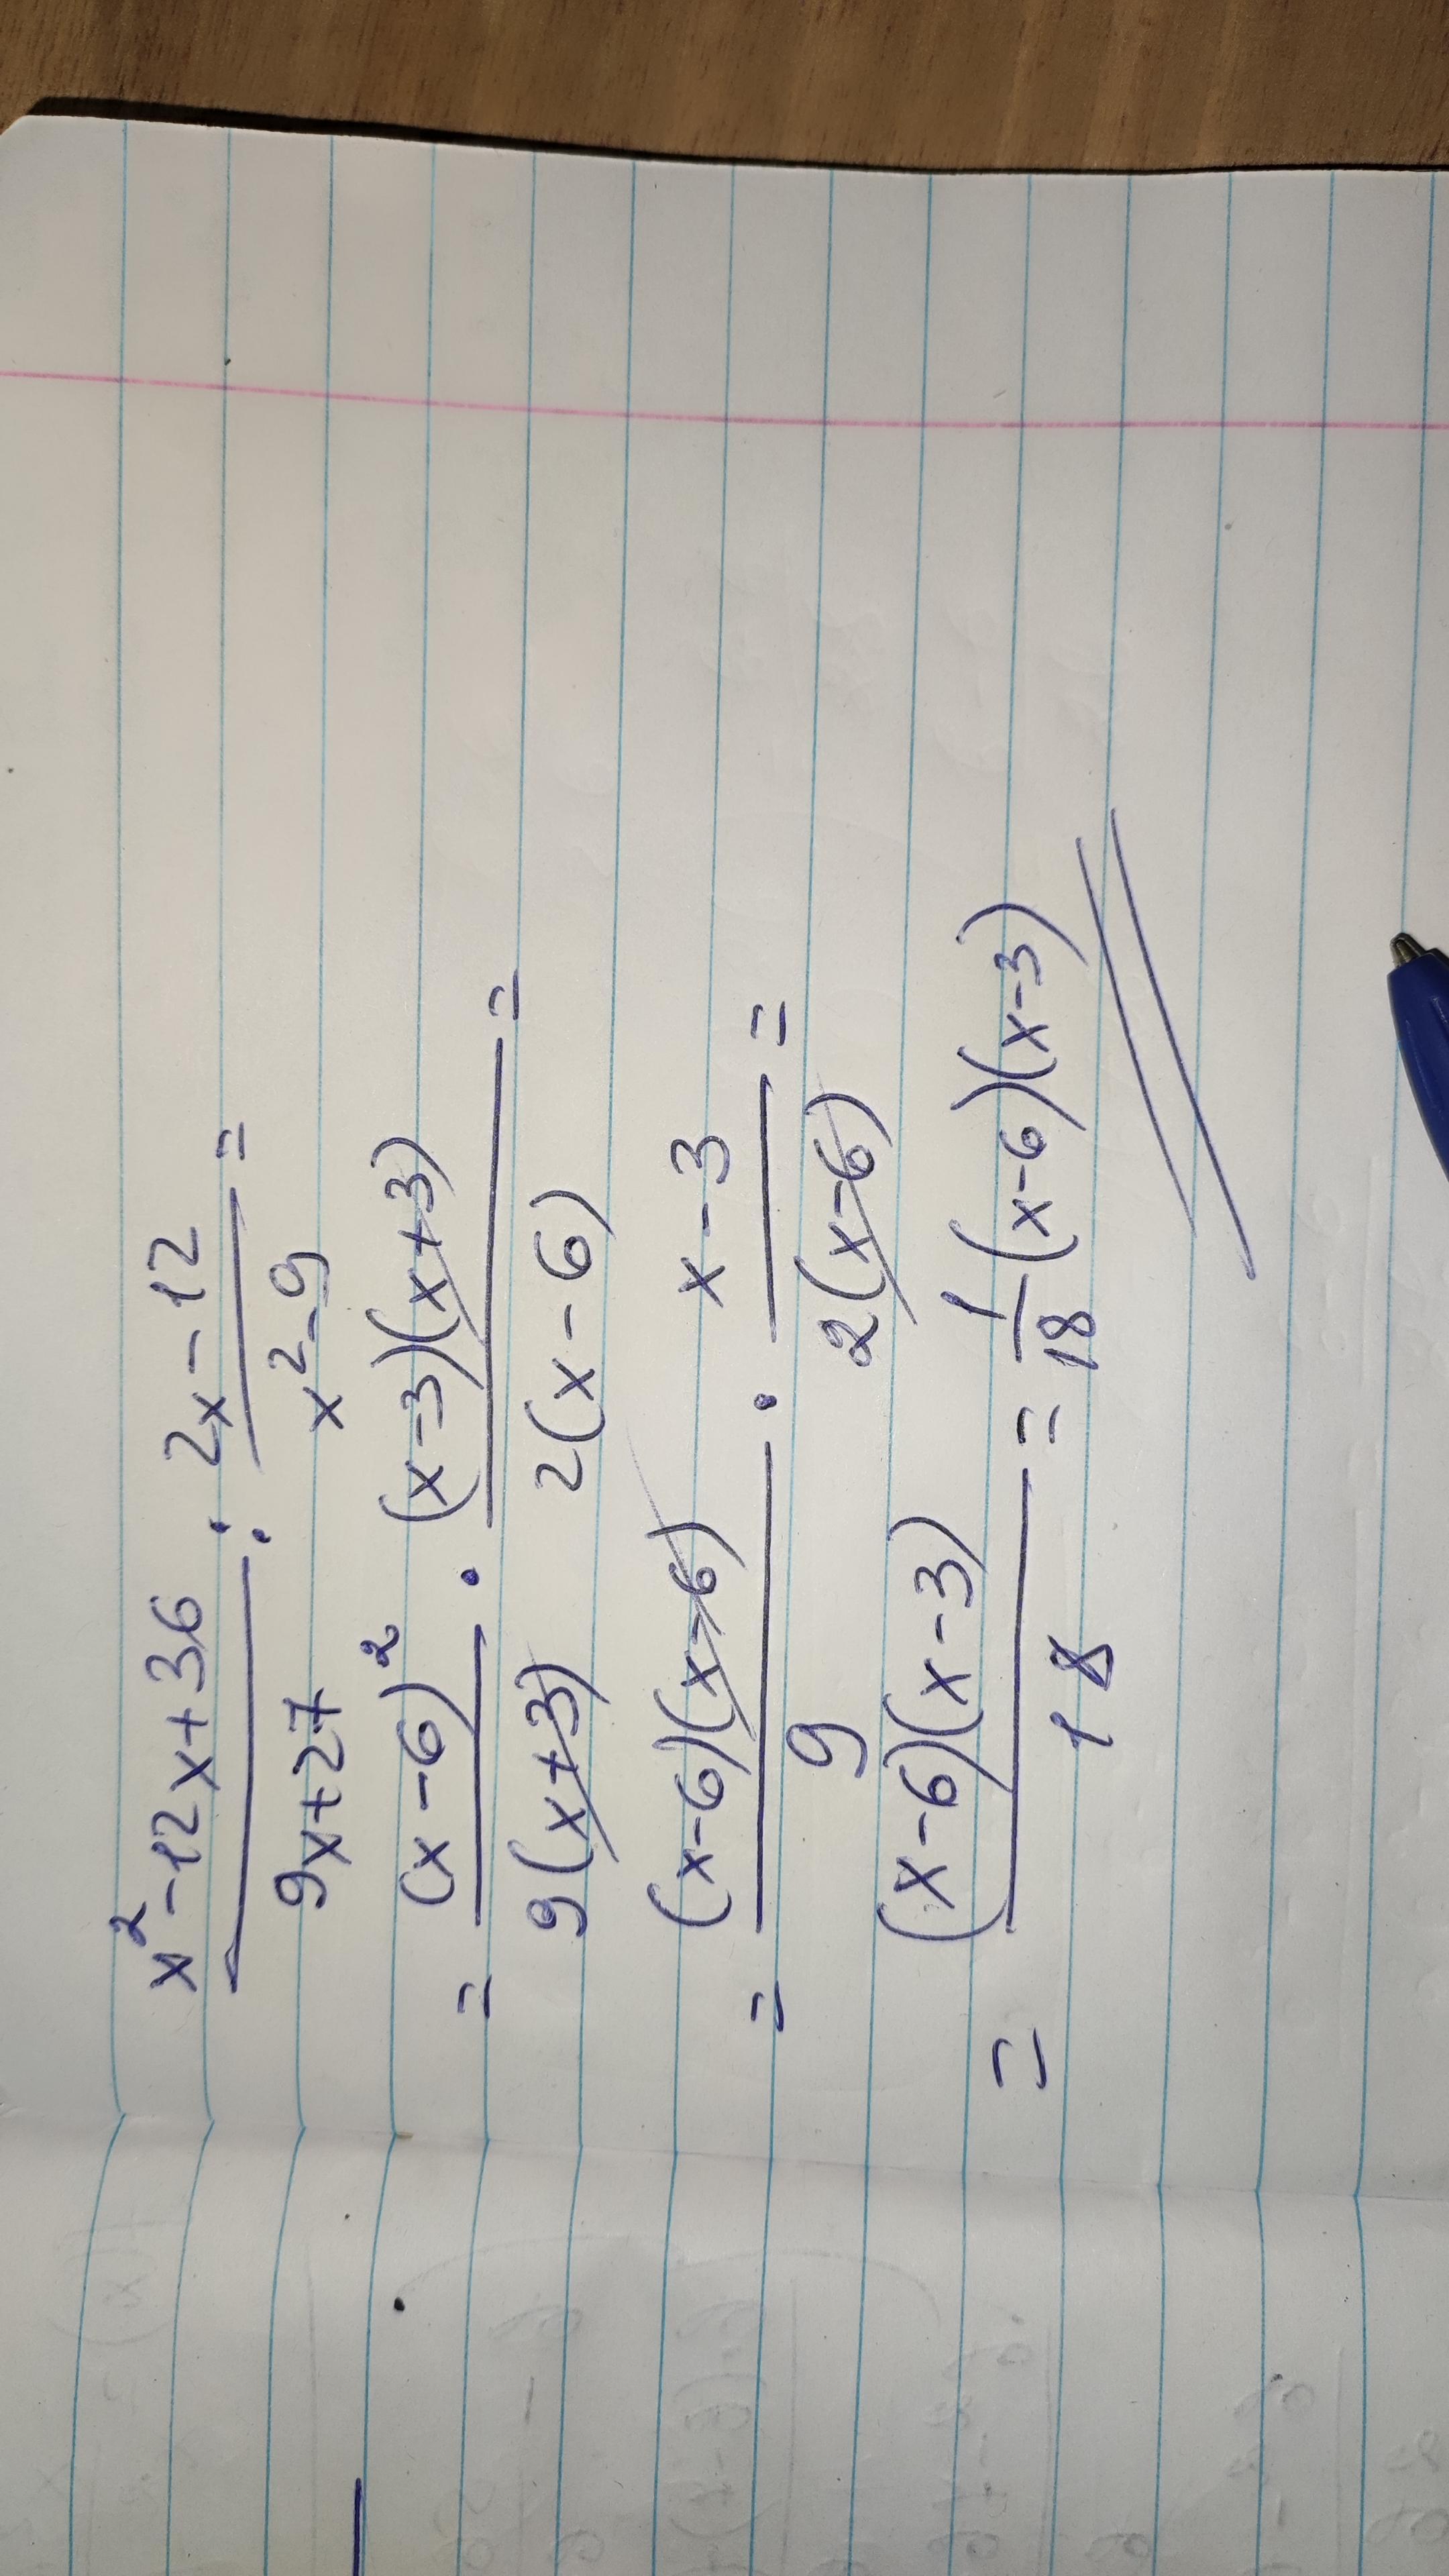 x² - 12x + 36 / 9x + 27 : 2x - 12 / x² - 9 =
= (x - 6)² / 9(x + 3) · (x - 3)(x + 3) / 2(x - 6) =
= (x - 6)(x - 6) / 9 · x - 3 / 2(x - 6) =
= (x - 6)(x - 3) / 18 = 1/18 (x - 6)(x - 3)